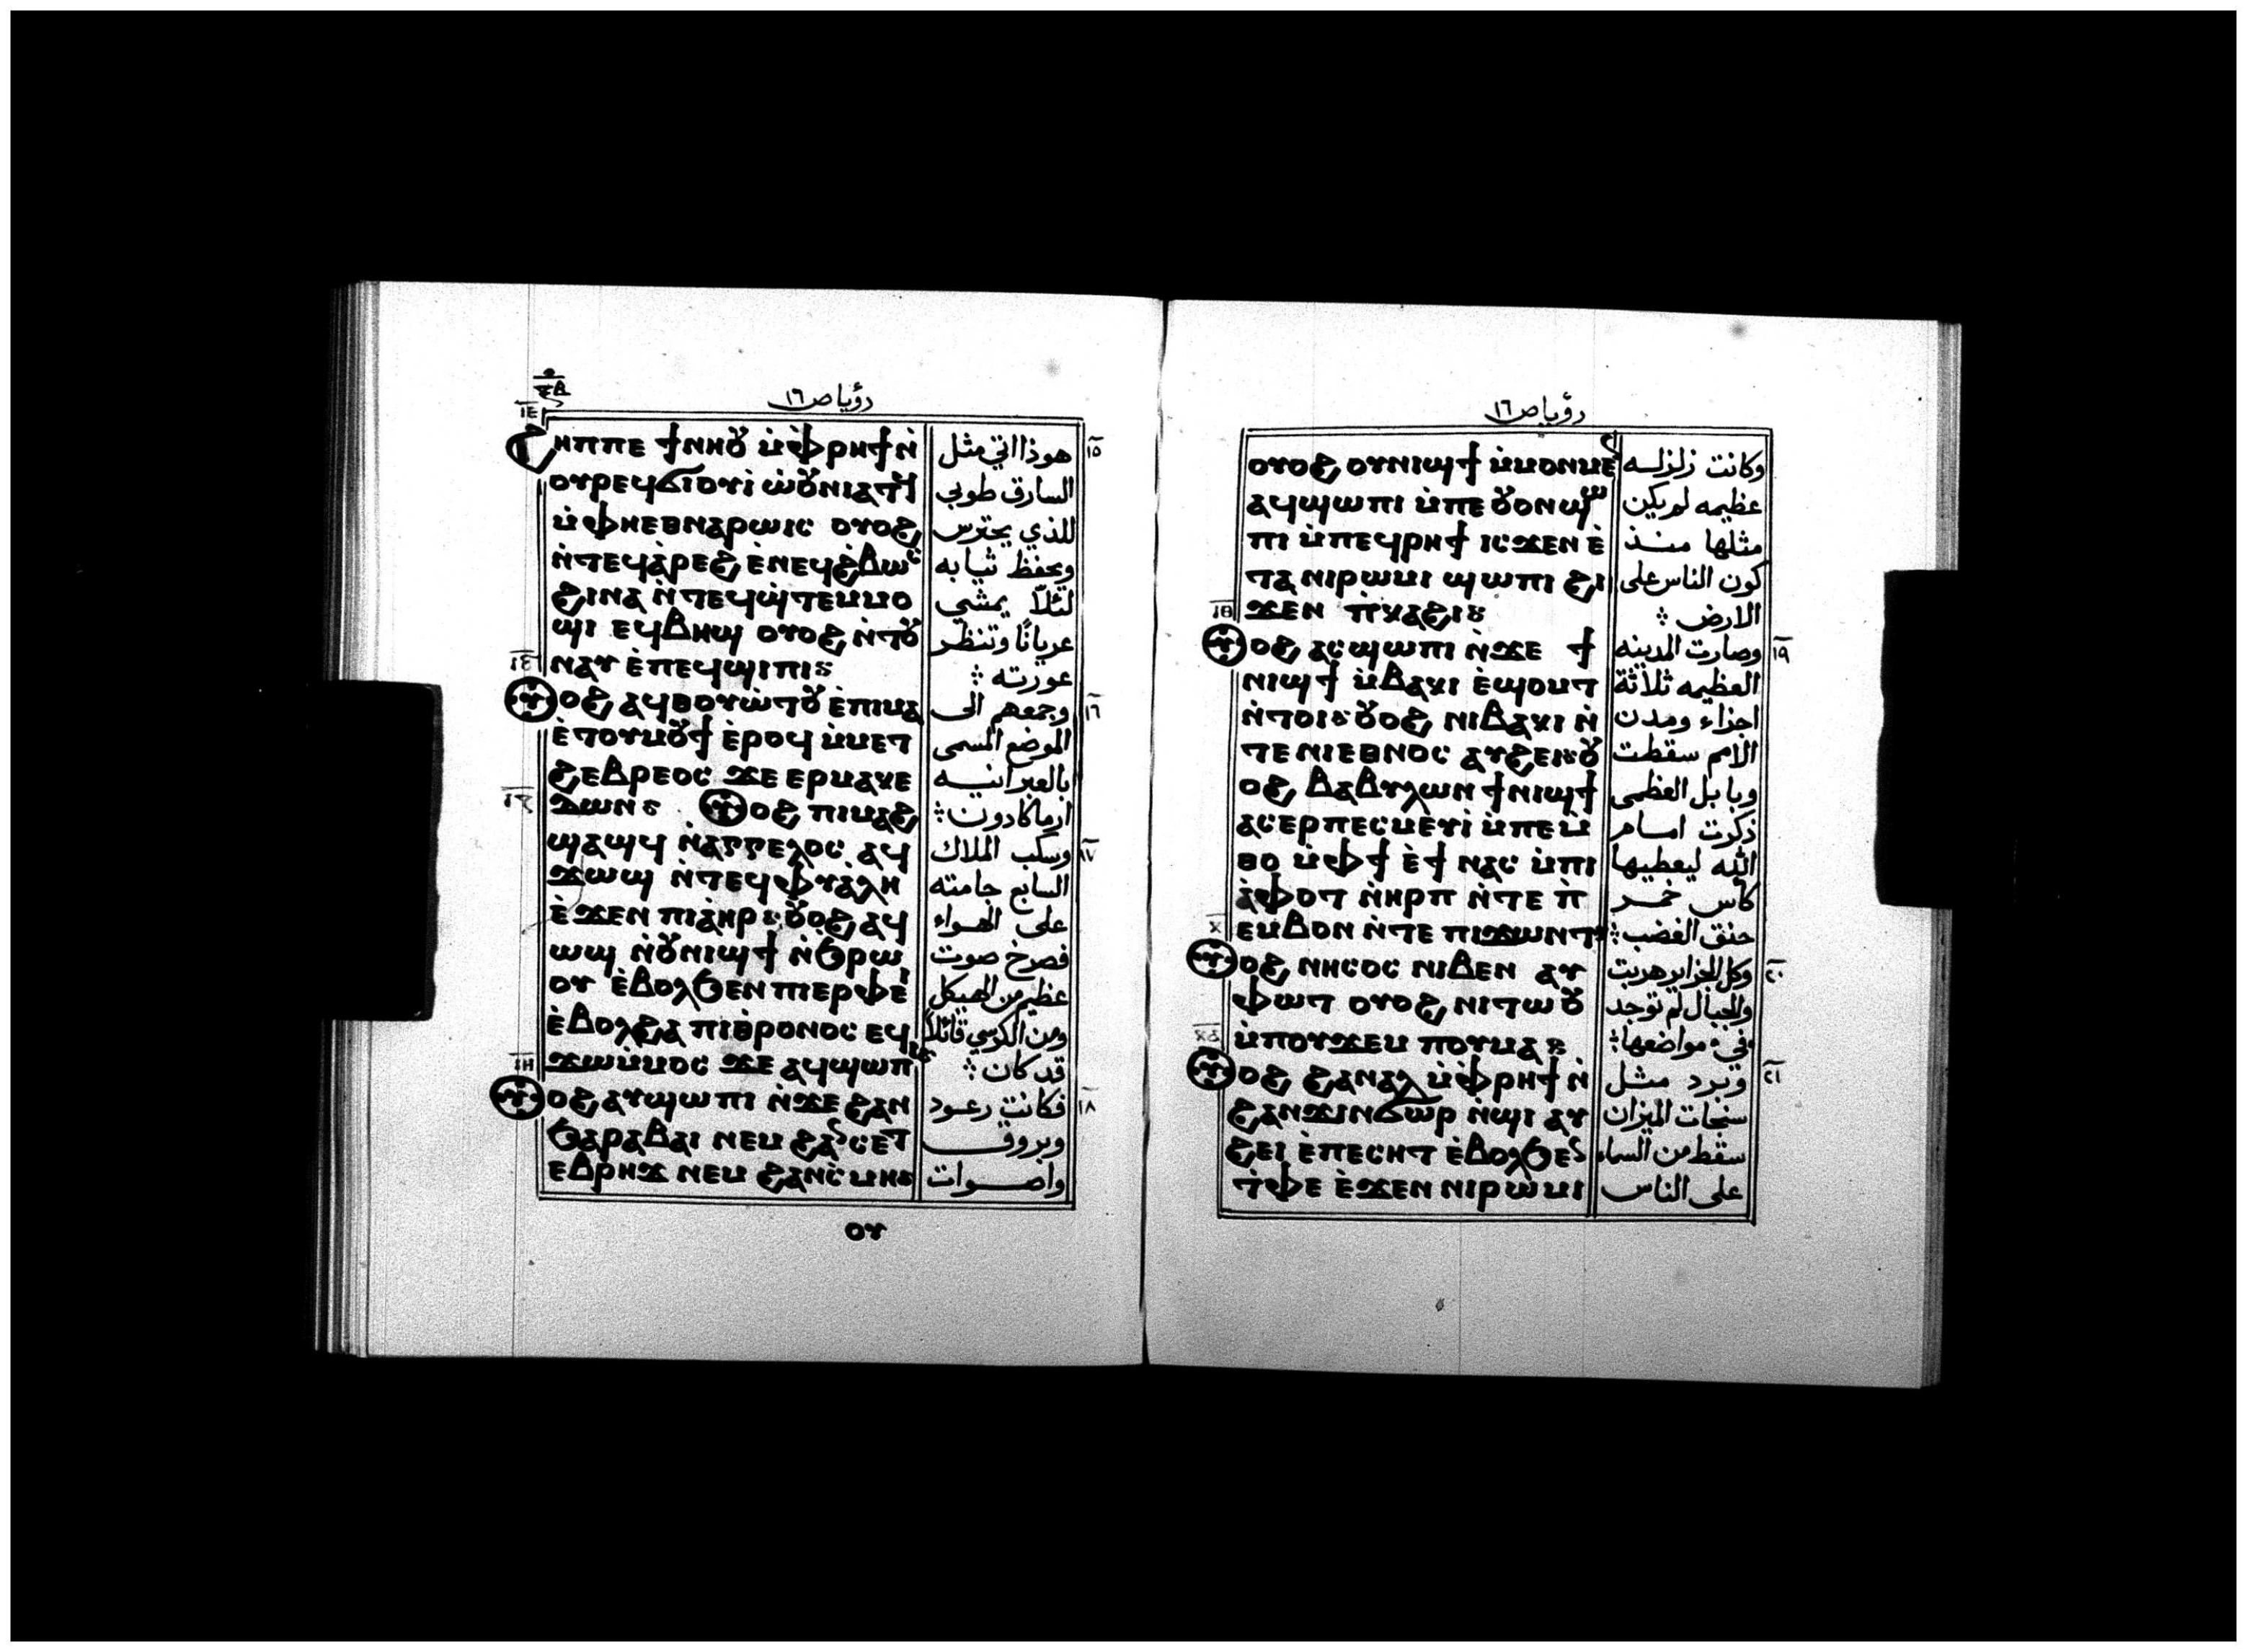 رؤيا ص ١٦
ϩⲏⲡⲡⲉ ϯⲛⲏⲟⲩ ⲙ̀ⲫ̀ⲣⲏϯ ⲛ̀
ⲟⲩⲣⲉϥϭⲓⲟⲩⲓ̀ ⲱ̀ⲟⲩⲛⲓⲁⲧϥ
ⲙ̀ⲫⲏⲉⲑⲛⲁⲣⲱⲓⲥ ⲟⲩⲟϩ
ⲛ̀ⲧⲉϥⲁ̀ⲣⲉϩ ⲉ̀ⲛⲉϥϩ̀ⲃⲱⲥ
ϩⲓⲛⲁ ⲛ̀ⲧⲉϥϣ̀ⲧⲉⲙⲙⲟ
ϣⲓ ⲉϥⲃⲏϣ ⲟⲩⲟϩ ⲛ̀ⲧⲟⲩ
ⲛⲁⲩ ⲉ̀ⲡⲉϥϣⲓⲡⲓ
ⲟⲩⲟϩ ⲁϥⲑⲟⲩⲱ̀ⲧⲟⲩ ⲉ̀ⲡⲓⲙⲁ
ⲉ̀ⲧⲟⲩⲙⲟⲩϯ ⲉ̀ⲣⲟϥ ⲙ̀ⲙⲉⲧ
ϩⲉⲃⲣⲉⲟⲥ ϫⲉ ⲉⲣⲙⲁⲭⲉ
ⲇⲱⲛ ⲟⲩⲟϩ ⲡⲓⲙⲁϩ
ϣⲁϣϥ ⲛ̀ⲁⲅⲅⲉⲗⲟⲥ ⲁϥ
ϫⲱϣ ⲛ̀ⲧⲉϥⲫⲩⲁ̀ⲗⲏ
ⲉ̀ϫⲉⲛ ⲡⲓⲁ̀ⲏⲣ ⲟⲩⲟϩ ⲁϥ
ⲱϣ ⲛ̀ⲟⲩⲛⲓϣϯ ⲛ̀ϧⲣⲱ
ⲟⲩ ⲉ̀ⲃⲟⲗϧⲉⲛ ⲡⲓⲉⲣⲫⲉⲓ
ⲉ̀ⲃⲟⲗϩⲁ ⲡⲓⲑⲣⲟⲛⲟⲥ ⲉϥ
ϫⲱⲙ̀ⲙⲟⲥ ϫⲉ ⲁϥϣⲱⲡⲓ
ⲟⲩⲟϩ ⲁⲩϣⲱⲡⲓ ⲛ̀ϫⲉ ϩⲁⲛ
ϧⲁⲣⲁⲃⲁⲓ ⲛⲉⲙ ϩⲁⲛⲥⲉⲧ
ⲉⲃⲣⲏϫ ⲛⲉⲙ ϩⲁⲛⲥ̀ⲙⲏ
ⲟⲩ
١٥ هوذا اتي مثل
السارق طوبي
للذي يحترس
ويحفظ ثيابه
لئلاّ يمشي
عريانًا وتنظر
عورته
١٦ وجمعهم الى
الموضع المسمى
بالعبرانيه
ارماكادون
١٧ وسكب الملاك
السابع جامته
على الهواء
فصرخ صوت
عظيم من الهيكل
ومن الكرسي قائلاً
قد كان
١٨ فكانت رعود
وبروق
واصوات
رؤيا ص ١٦
ⲟⲩⲟϩ ⲟⲩⲛⲓϣϯ ⲙ̀ⲙⲟⲛⲙⲉⲛ
ⲁϥϣⲱⲡⲓ ⲙ̀ⲡⲉ ⲟⲩⲟⲛ ϣⲱ
ⲡⲓ ⲙ̀ⲡⲉϥⲣⲏϯ ⲓⲥϫⲉⲛ ⲉ̀
ⲧⲁ ⲛⲓⲣⲱⲙⲓ ϣⲱⲡⲓ ϩⲓ
ϫⲉⲛ ⲡ̀ⲕⲁϩⲓ
ⲟⲩⲟϩ ⲁⲥϣⲱⲡⲓ ⲛ̀ϫⲉ ϯ
ⲛⲓϣϯ ⲙ̀ⲃⲁⲕⲓ ⲉ̀ϣⲟⲙⲧ
ⲛ̀ⲧⲟⲓ ⲟⲩⲟϩ ⲛⲓⲃⲁⲕⲓ ⲛ̀
ⲧⲉ ⲛⲓⲉⲑⲛⲟⲥ ⲁⲩϩⲉⲓ ⲟⲩ
ⲟϩ ⲃⲁⲃⲩⲗⲱⲛ ϯⲛⲓϣϯ
ⲁⲥⲉⲣⲡⲉⲥⲙⲉⲩⲓ̀ ⲙ̀ⲡⲉⲙ̀
ⲑⲟ ⲙ̀ⲫϯ ⲉ̀ϯ ⲛⲁⲥ ⲙ̀ⲡⲓ
ⲁ̀ⲫⲟⲧ ⲛ̀ⲏⲣⲡ ⲛ̀ⲧⲉ ⲡ̀
ⲉⲙⲃⲟⲛ ⲛ̀ⲧⲉ ⲡⲓϫⲱⲛⲧ
ⲟⲩⲟϩ ⲛⲏⲥⲟⲥ ⲛⲓⲃⲉⲛ ⲁⲩ
ⲫⲱⲧ ⲟⲩⲟϩ ⲛⲓⲧⲱⲟⲩ
ⲙ̀ⲡⲟⲩϫⲉⲙ ⲡⲟⲩⲙⲁ
ⲟⲩⲟϩ ϩⲁⲛⲁⲗ ⲙ̀ⲫ̀ⲣⲏϯ ⲛ̀
ϩⲁⲛϫⲓⲛϭⲱⲣ ⲛ̀ϣⲓ ⲁⲩ
ϩⲉⲓ ⲉ̀ⲡⲉⲥⲏⲧ ⲉ̀ⲃⲟⲗϧⲉⲛ
ⲧ̀ⲫⲉ ⲉ̀ϫⲉⲛ ⲛⲓⲣⲱⲙⲓ
وكانت زلزله
عظيمه لم يكن
مثلها منذ
كون الناس على
الارض
١٩ وصارت المدينه
العظيمه ثلاثة
اجزاء ومدن
الامم سقطت
وبابل العظمى
ذكرت امام
الله ليعطيها
كاس خمر
حنق الغضب
٢٠ وكل الجزاير هربت
والجبال لم توجد
في مواضعها
٢١ وبرد مثل
سنجات الميزان
سقط من السماء
على الناس